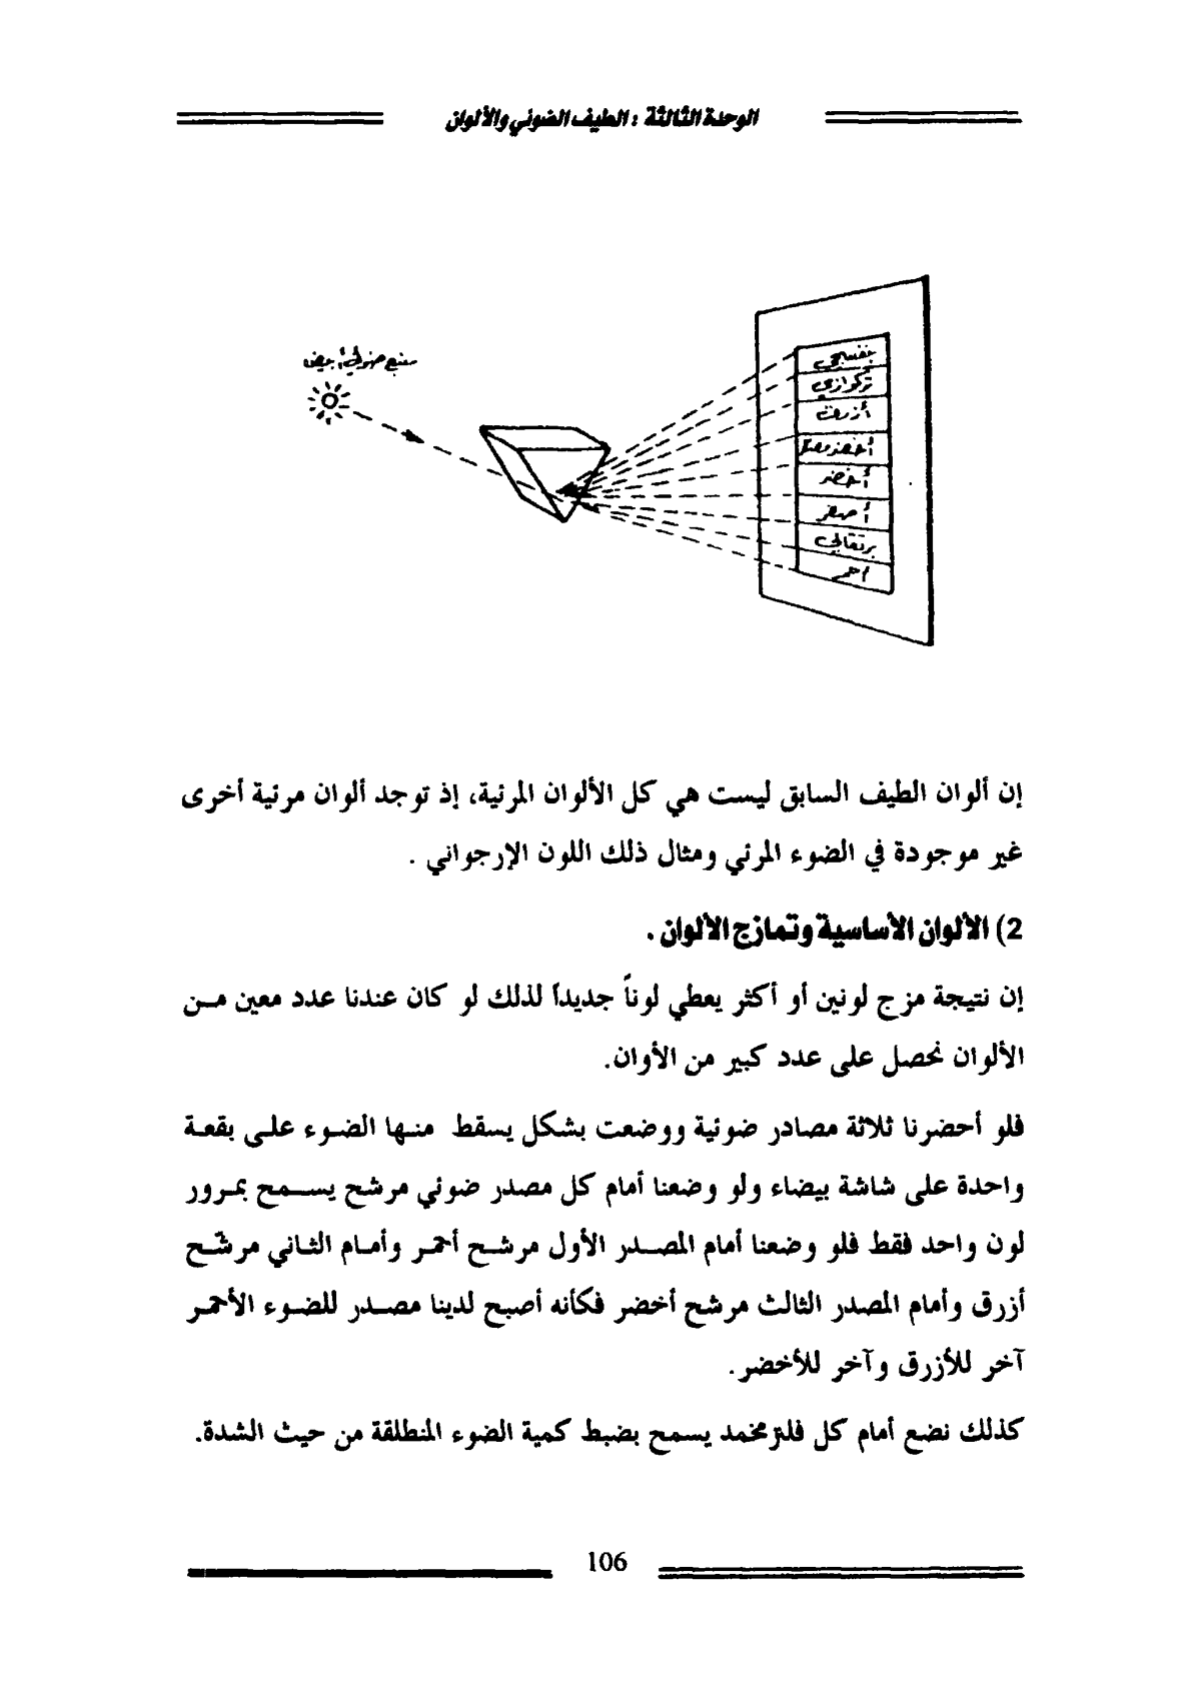 الوحدة الثالثة : الطيف الضوئي والألوان
منبع ضوئي أبيض
بنفسجي
تركوازي
أزرق
أخضر
أصفر
برتقالي
أحمر
إن ألوان الطيف السابق ليست هي كل الألوان المرئية، إذ توجد ألوان مرئية أخرى
غير موجودة في الضوء المرئي ومثال ذلك اللون الإرجواني .
2) الألوان الأساسية وتمازج الألوان .
إن نتيجة مزج لونين أو أكثر يعطي لوناً جديداً لذلك لو كان عندنا عدد معين مـن
الألوان نحصل على عدد كبير من الأوان.
فلو أحضرنا ثلاثة مصادر ضوئية ووضعت بشكل يسقط منـها الضـوء علـى بقعـة
واحدة على شاشة بيضاء ولو وضعنا أمام كل مصدر ضوئي مرشح يســمح بمـرور
لون واحد فقط فلو وضعنا أمام المصــدر الأول مرشـح أحمـر وأمـام الثـاني مرشّـح
أزرق وأمام المصدر الثالث مرشح أخضر فكأنه أصبح لدينا مصـدر للضـوء الأحمـر
آخر للأزرق وآخر للأخضر.
كذلك نضع أمام كل فلتر مخمد يسمح بضبط كمية الضوء المنطلقة من حيث الشدة.
106